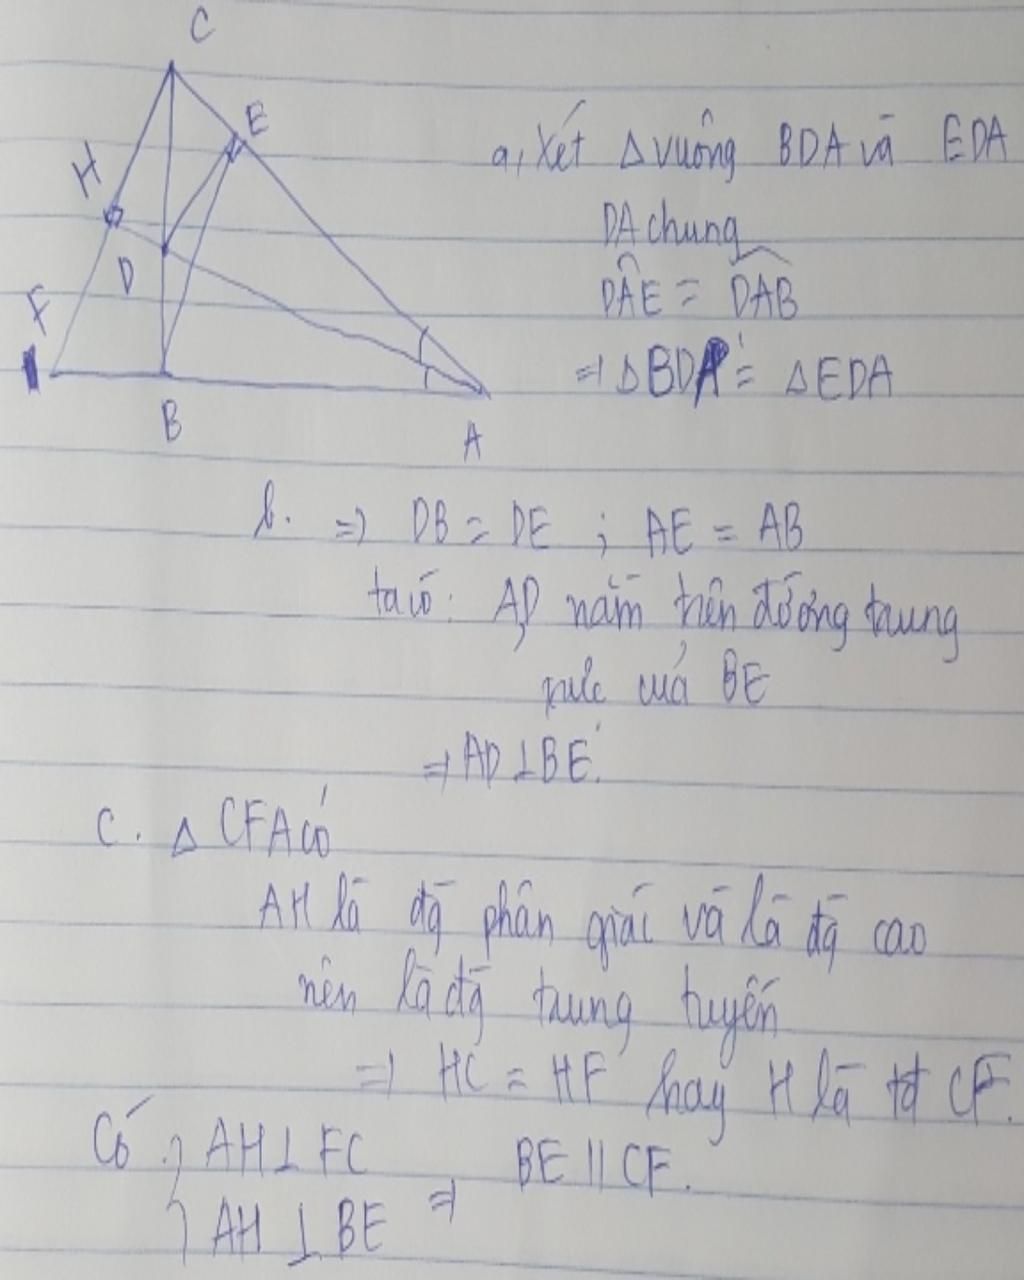 C
E
H
D
F
B
A
a, Xét Δ vuông BDA và EDA
DA chung
DÂE = DAB
=> Δ BDA = Δ EDA
b. => DB = DE ; AE = AB
ta có: AD nằm trên đường trung
trực của BE
=> AD ⊥ BE.
C. Δ CFA có
AH là đg phân giác và là đg cao
nên là đg trung tuyến
=> HC = HF hay H là tđ CF.
Có { AH ⊥ FC
AH ⊥ BE => BE // CF.